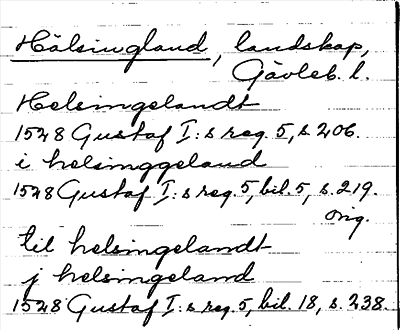 Hälsingland, landskap,
Gävleb. l.
Helsingelandt
1528 Gustaf I:s reg. 5, s 206.
i helsinggeland
1528 Gustaf I:s reg. 5, bil. 5, s. 219.
orig.
til helsingelandt
j helsingeland
1528 Gustaf I:s reg. 5, bil. 18, s. 238.